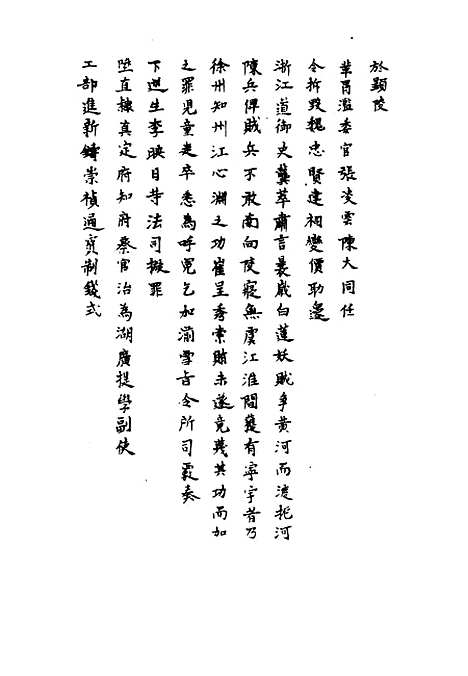 於顯陵
革冒濫委官張凌雲陳大同任
令拆毀魏忠賢建祠變價助邊
浙江道御史龔萃肅言曩歲白蓮妖賊爭黃河而渡扼河
陳兵俾賊兵不敢南向陵寢無虞江淮間獲有寧宇者乃
徐州知州江心淵之功崔呈秀索賄未遂竟蔑其功而加
之罪兒童走卒悉為呼冤乞加湔雪旨令所司覈奏
下逆生李映日等法司擬罪
陞直隸真定府知府蔡官治為湖廣提學副使
工部進新鑄崇禎通寳制錢式